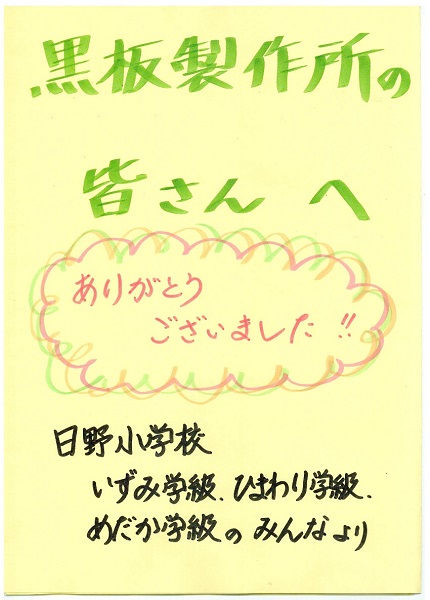 黒板製作所の
皆さんへ
ありがとう
ございました!!
日野小学校
いずみ学級、ひまわり学級、
めだか学級のみんなより